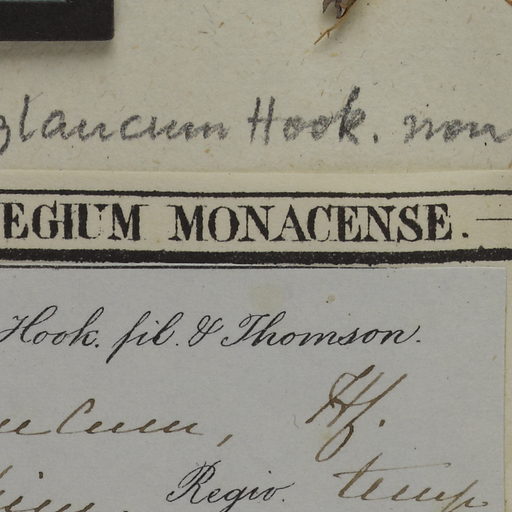 glaucum Hook. non
EGIUM MONACENSE.
Hook. fil. & Thomson.
ucum, Hf.
Regio. temp